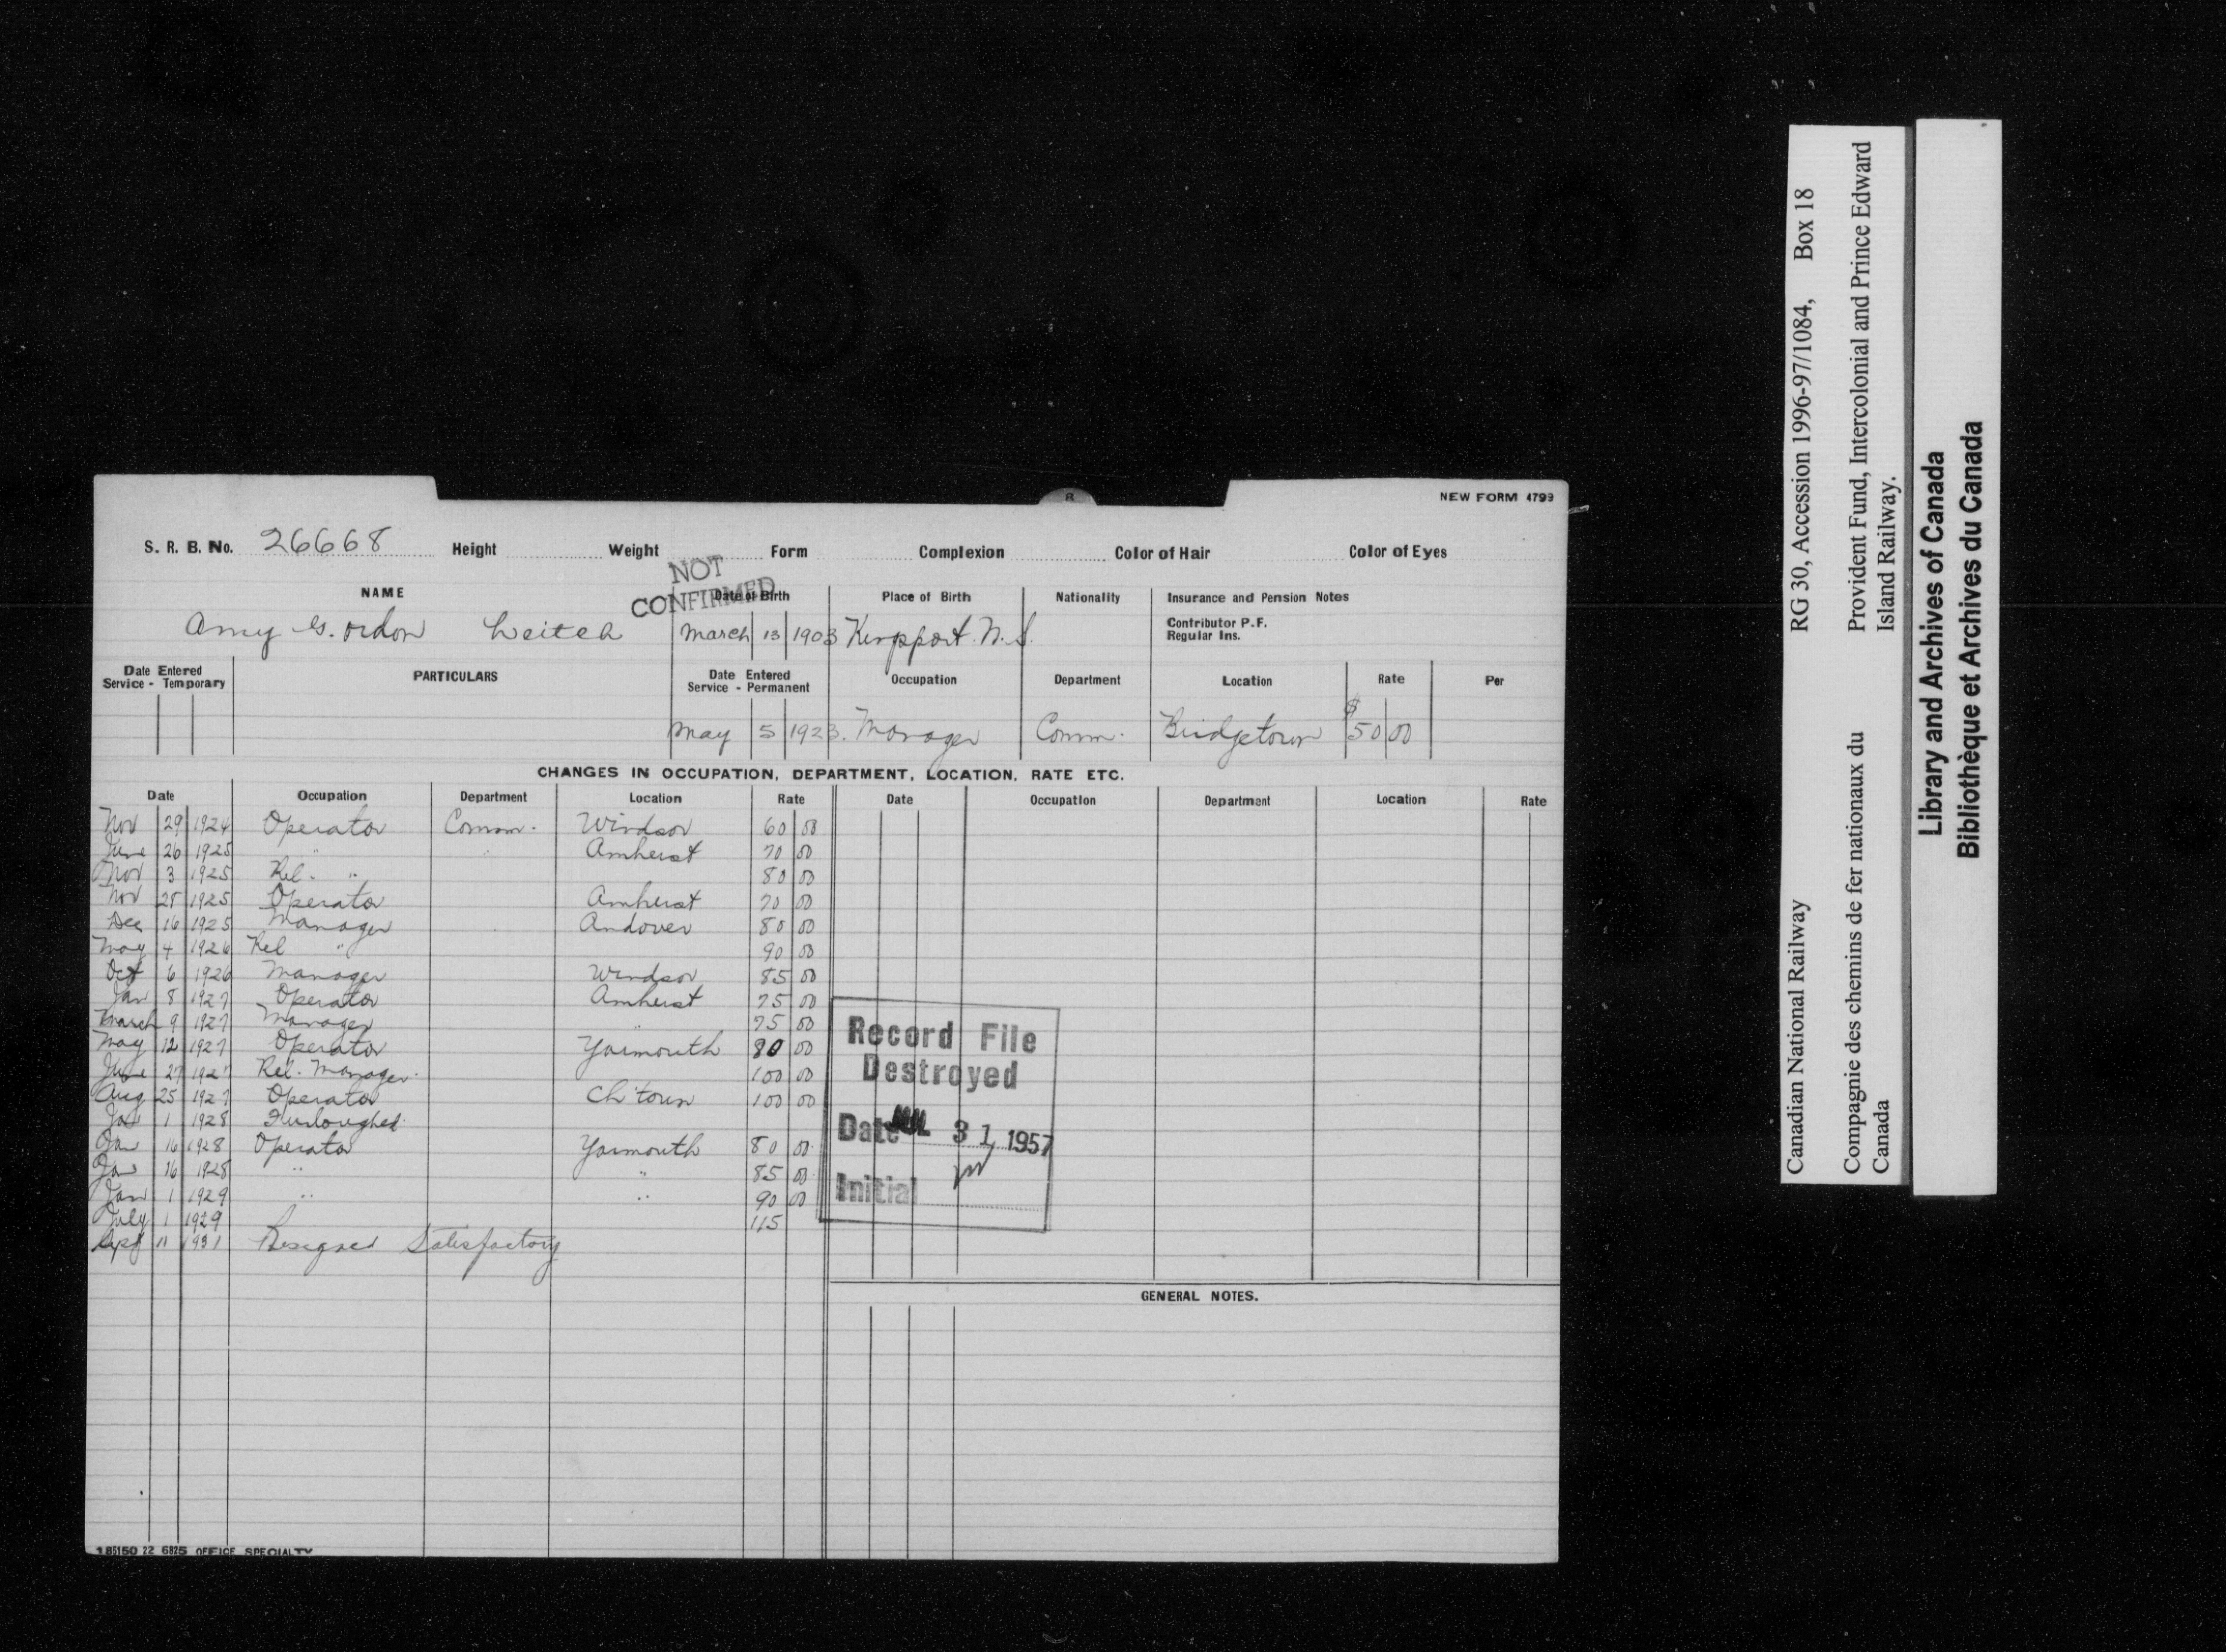 8
NEW FORM 4799
S. R. B. No. 26668 Height Weight Form Complexion Color of Hair Color of Eyes
NOT CONFIRMED
NAME Date of Birth Place of Birth Nationality Insurance and Pension Notes
Contributor P.F.
Regular Ins.
Amy Gordon Leitch March 13 1903 Kingsport. N.S.
Date Entered Service - Temporary PARTICULARS Date Entered Service - Permanent Occupation Department Location Rate Per
May 5 1923. Manager Comm. Bridgetown $50 00
CHANGES IN OCCUPATION, DEPARTMENT, LOCATION, RATE ETC.
Date Occupation Department Location Rate Date Occupation Department Location Rate
Nov 29 1924 Operator Comm. Windsor 60 00
June 26 1925 " " Amherst 70 00
Nov 3 1925 Rel. " 80 00
Nov 25 1925 Operator Amherst 70 00
Dec 16 1925 Manager Andover 80 00
May 4 1926 Rel " 90 00
Oct 6 1926 Manager Windsor 85 00
Jan 8 1927 Operator Amherst 75 00
March 9 1927 Manager " 75 00
May 12 1927 Operator Yarmouth 80 00
June 27 1927 Rel. Manager. 100 00
Aug 25 1927 Operator Ch'town 100 00
Jan 1 1928 Furloughed.
Jan 16 1928 Operator Yarmouth 80 00
Jan 16 1928 " " 85 00
Jan 1 1929 " " 90 00
July 1 1929 115
Sept 11 1931 Resigned Satisfactory
Record File
Destroyed
Date JUL 31 1957
Initial
GENERAL NOTES.
185150 22 6825 OFFICE SPECIALTY
Canadian National Railway RG 30, Accession 1996-97/1084, Box 18
Compagnie des chemins de fer nationaux du Canada
Provident Fund, Intercolonial and Prince Edward Island Railway.
Library and Archives of Canada
Bibliothèque et Archives du Canada